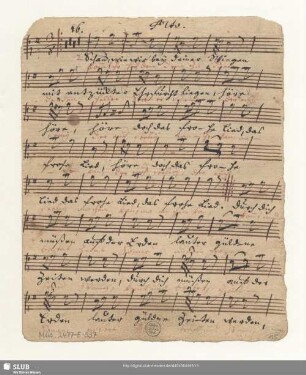 16. Alto.
2. Schau, wie wir bey deiner Wiegen
mit entzückter Ehrfurcht liegen, höre
höre, höre doch das fro-he Lied, das
frohe Lied, höre doch das fro-he
Lied das frohe Lied, das frohe Lied. Durch dich
müssen auf der Erden lauter güldne
Zeiten werden, durch dich müssen auf der
Erden lauter güldne Zeiten werden,
SLUB